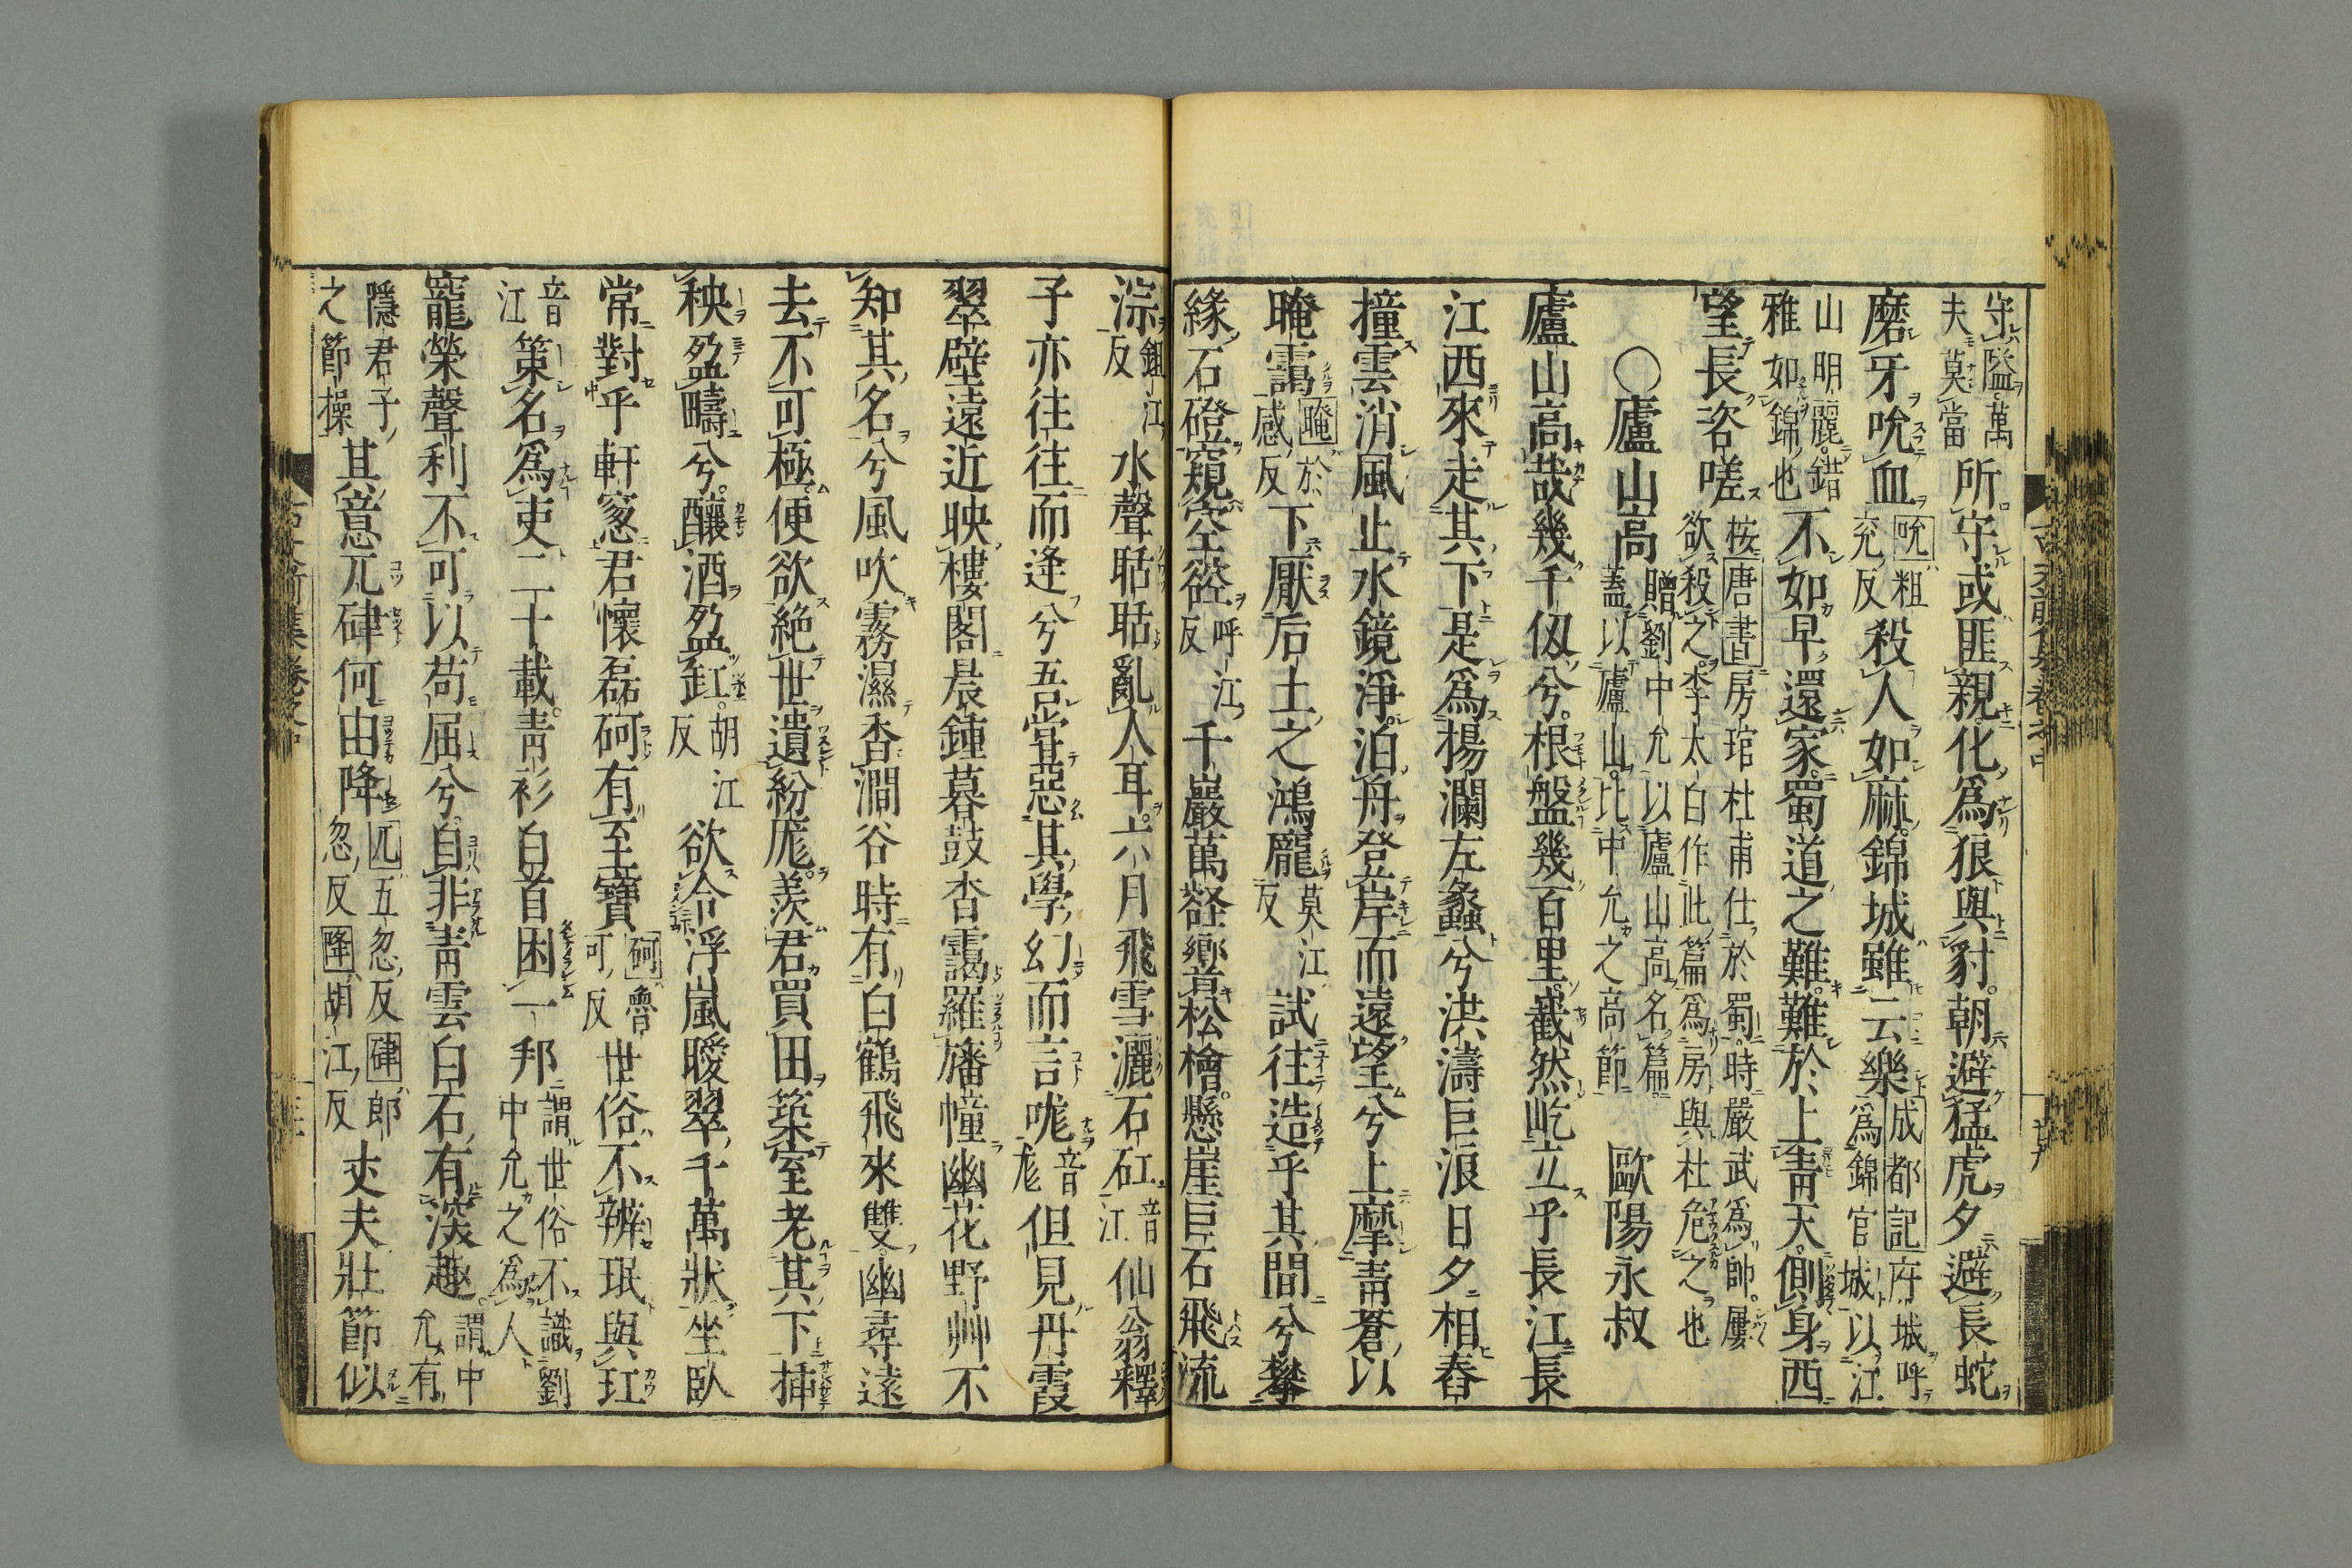 守隘萬夫莫當所守或匪親化爲狼與豺。朝避猛虎夕避長蛇
磨牙吮血吮粗兖反殺人如麻。錦城雖云樂成都記府城呼爲錦官城以江
山明麗。錯雅如錦也不如早還家。蜀道之難。難於上靑天。側身西
望長咨嗟桉唐書房琯杜甫仕於蜀。時嚴武爲帥。屢欲殺之。李太白作此篇爲房與杜危之也
〇廬山高贈劉中允以廬山高名篇。蓋以廬山。比中允之高節 歐陽永叔
廬山高哉幾千仭兮。根盤幾百里。巀然屹立乎長江長
江西來走其下是爲揚瀾左蠡兮洪濤巨浪日夕相舂
撞雲消風止水鏡淨。泊舟登岸而遠望兮上摩靑蒼以
晻靄晻於感反下厭后土之鴻龐莫江反試往造乎其間兮攀
緣石磴窺空谾呼江反千巖萬壑響松檜。懸崖巨石飛流
淙鉏江反水聲聒聒亂人耳。六月飛雪灑石矼音江仙翁釋
子亦往往而逢兮吾嘗惡其學幻而言哤音尨但見丹霞
翠壁遠近映樓閣晨鍾暮鼓杳靄羅旛幢幽花野艸不
知其名兮風吹霧濕香澗谷時有白鶴飛來雙幽尋遠
去不可極便欲絶世遺紛厖羨君買田築室老其下揷
秧盈疇兮。釀酒盈缸。胡江反欲令浮嵐曖翠千萬狀坐臥
常對乎軒窓君懷磊砢有至寶砢魯可反世俗不辨珉與玒
音江策名爲吏二十載。靑衫白首困一邦謂世俗不識劉中允之爲人
寵榮聲利不可以苟屈兮。自非靑雲白石有深趣。謂中允有
隱君子之節操其意兀硉何由降兀五忽反硉郎忽反降胡江反丈夫壯節似